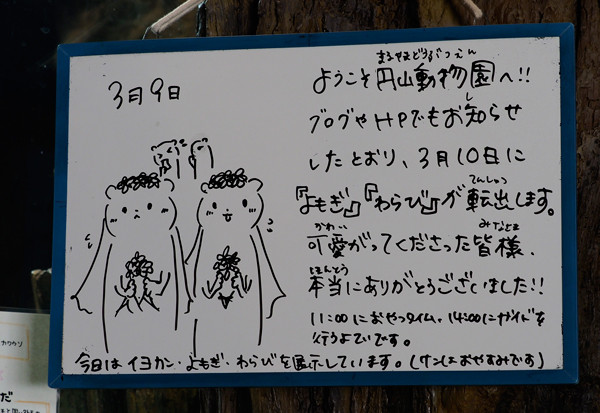 3月9日
まるやまどうぶつえん
ようこそ円山動物園へ!!
ブログやHPでもお知らせ
し
したとおり、3月10日に
てんしゅつ
『よもぎ』『わらび』が転出します。
かわい
みなさま
可愛がってくださった皆様、
ほんとう
本当にありがとうございました!!
11:00におやつタイム、14:00にガイドを
行うよていです。
今日はイヨカン・よもぎ・わらびを展示しています。(ケンはおやすみです)